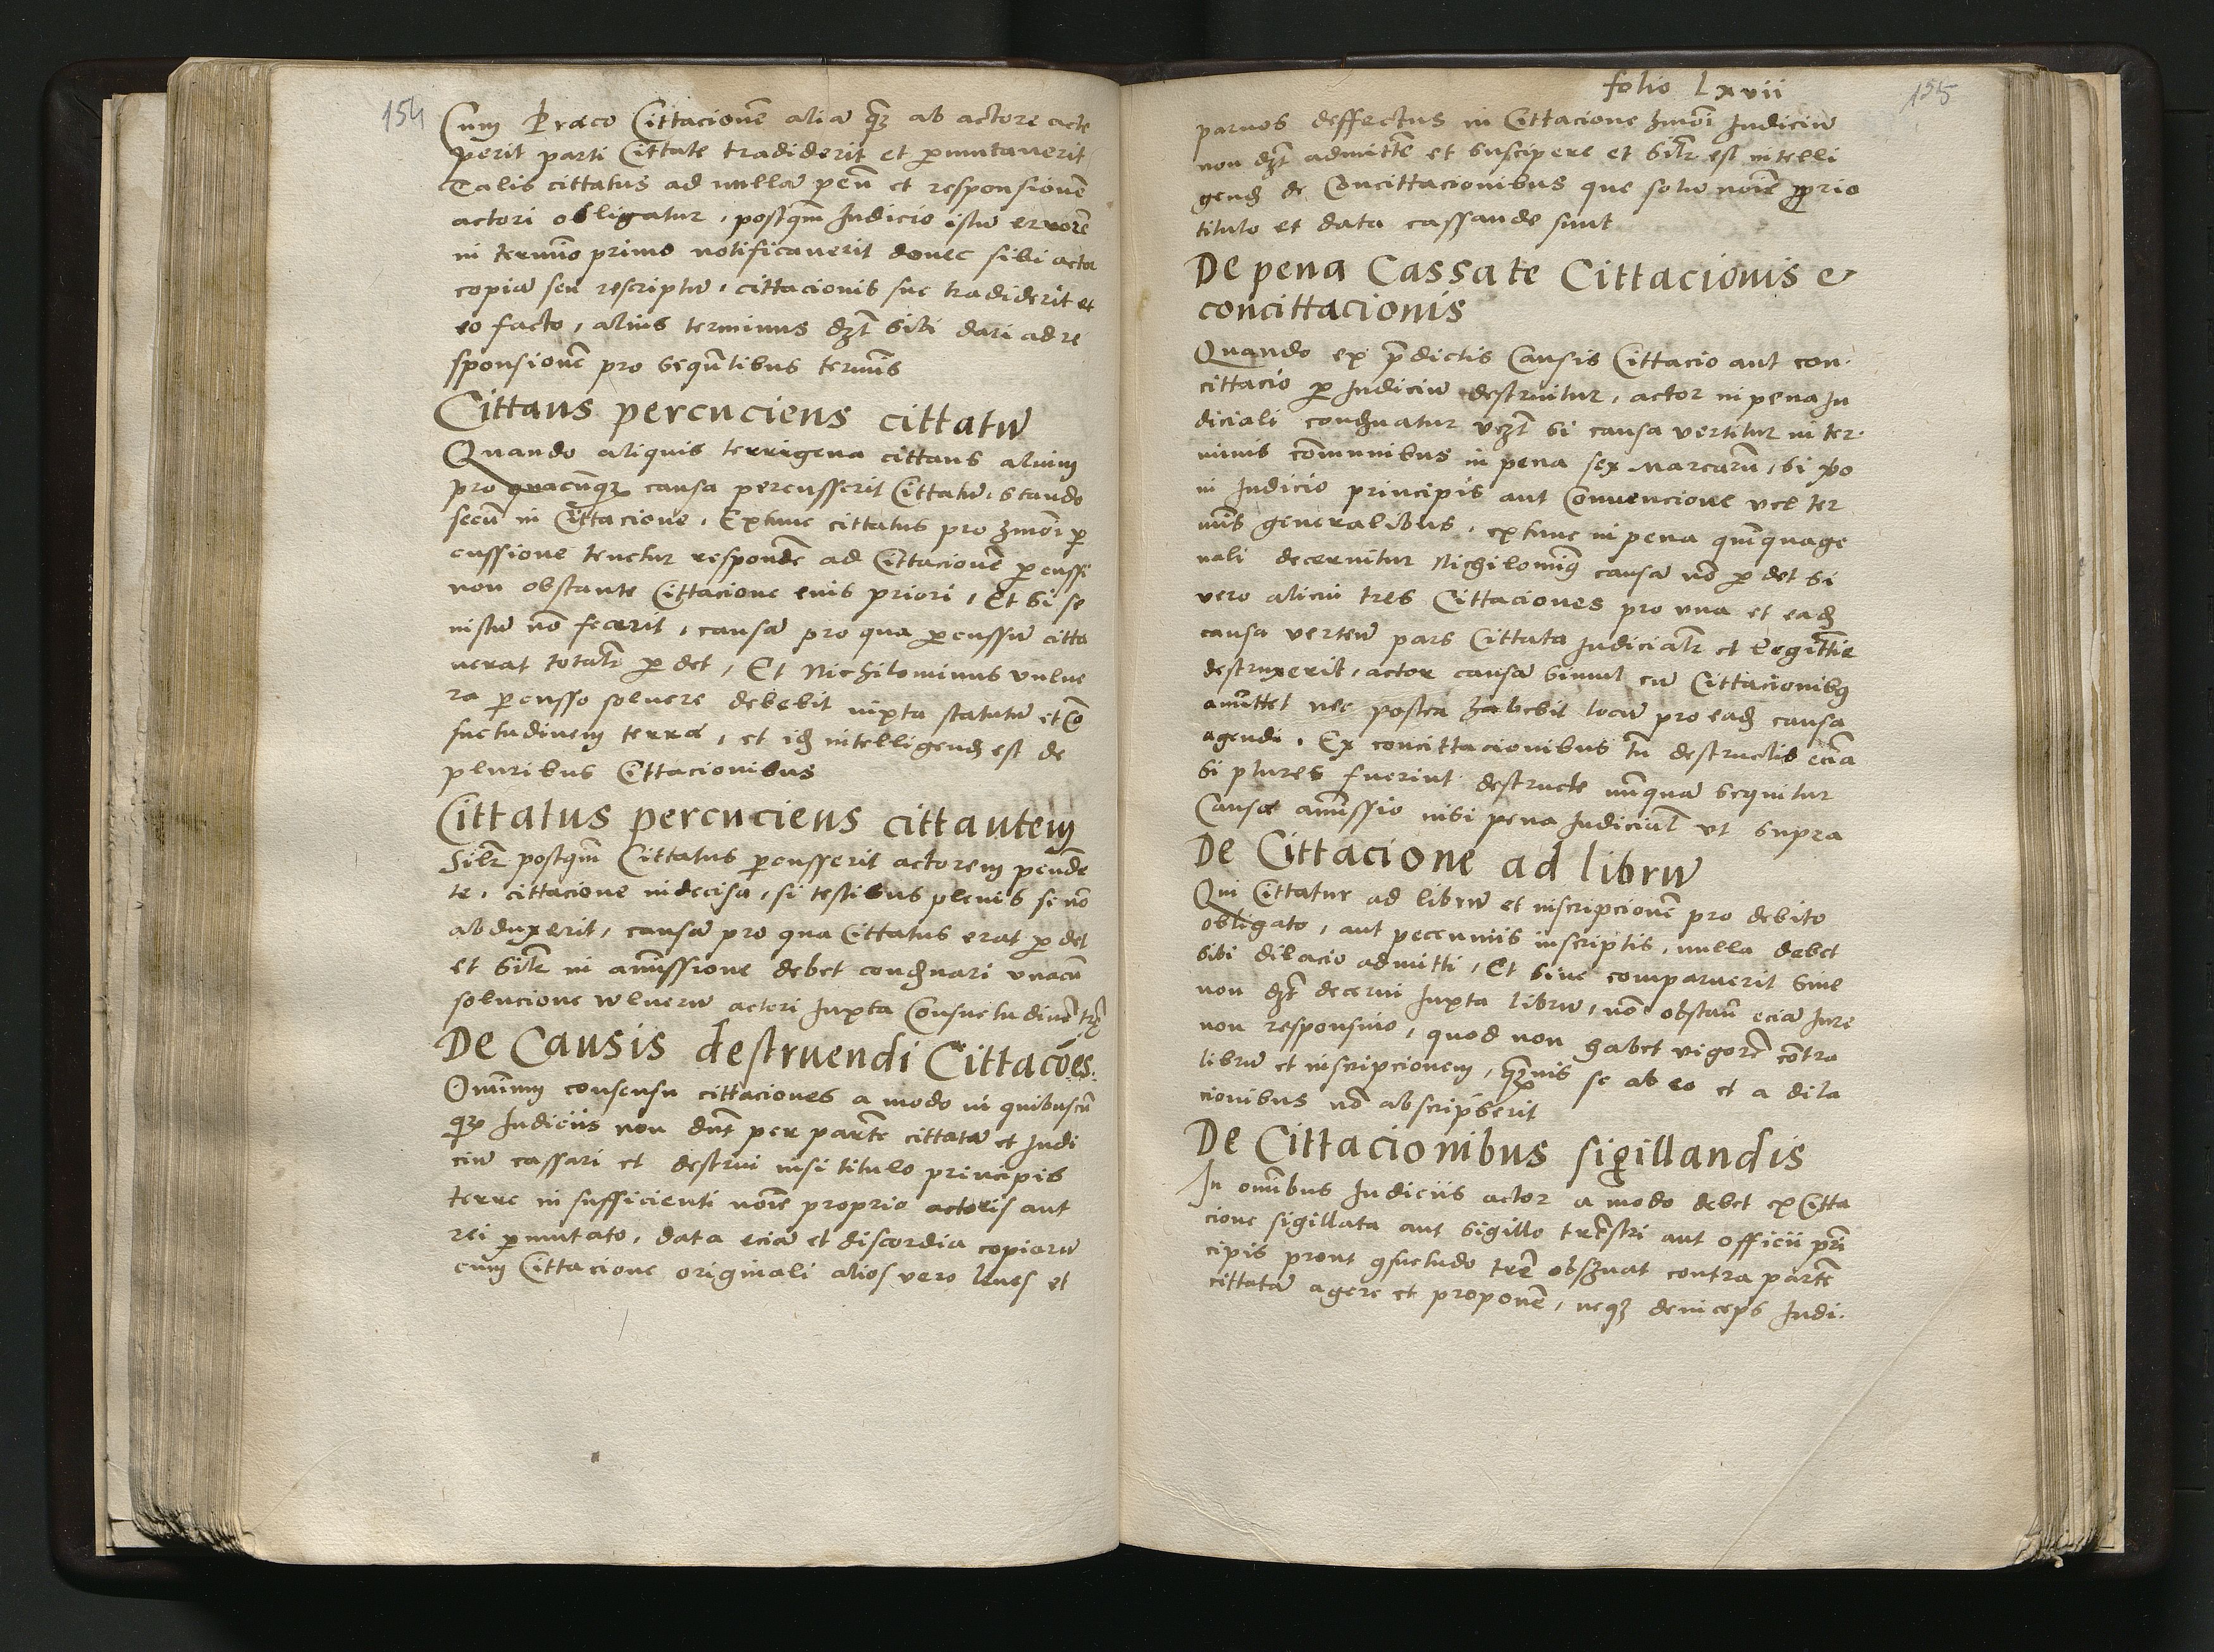 154
Cum Præco Cittacionē aliā qȝ ab actore acce
perit parti Cittate tradiderit et ꝑmutaverit
Talis cittatus ad nullā penā et responsionē
actori obligatur, postqm̄ Iudicio istū errorē
in termīo primo notificaverit donec sibi actor
copiā seu rescriptū, cittacionis sue tradiderit et
eo facto, alius terminus dȝt sibi dari ad re
sponsionē pro sequētibus termīs
Cittans percuciens cittatū
Quando aliquis terrigena cittans alium
pro quacūqȝ causa percusserit Cittatū, stando
secū in Cittacione, Extunc cittatus pro hmōi ꝑ
cussione tenetur respondē ad Cittacionē ꝑcussi
non obstante Cittacione eius priori, Et si se
iustū nō fecerit, causā pro qua ꝑcussū citta
verat totalr̄ ꝑdet, Et Nichilominus vulne
ra ꝑcusso solvere debebit iuxta statutū et Cō
suetudinem terræ, et idȝ intelligendȝ est de
pluribus Cittacionibus
Cittatus percuciens cittantem
Silr̄ postqm̄ Cittatus ꝑcusserit actorem pendē
te, cittacione indecisa, si testibus plenis se nō
abduxerit, causā pro qua Cittatus erat ꝑdet
et silr̄ in amīssione debet condȝnari unacū
solucione wlnerū actori Iuxta Consuetudinē trē
De Causis destruendi Cittacōēs.
Omīum consensu cittaciones a modo in quibuscū
qȝ Iudiciis non dn̄t per partē cittatā et Iudi
ciū cassari et destrui nisi titulo principis
terre in sufficienti noīe proprio actoris aut
rei ꝑmutato, data eciā et discordia copiarū
cum Cittacione originali alios vero leves et
folio Lxvii
155
parvos deffectus in Cittacione hmōi Iudiciū
non dȝt admittē et suscipere et silr̄ est intelli
gendȝ de Concittacionibus que solū noīe ꝓprio
titulo et data cassande sunt
De pena Cassate Cittacionis &
concittacionis
Quando ex p̄dictis Causis Cittacio aut con.
cittacio ꝑ Iudiciū destruitur, actor in pena Iu
diciali condȝnatur vȝt si causa vertitur in ter.
minis cōmunibus in pena sex Marcarū, si v̄o
in Iudicio principis aut Convencione vel ter
mīs generalibus, extunc in pena quīquage
nali decernitur Nichilomīꝰ causā nō ꝑdet si
vero alicui tres Cittaciones pro una et eadȝ
causa verten̄ pars Cittata Iudicialr̄ et legittīe
destruxerit, actor causā simul cū Cittacionibꝰ
amittet nec postea habebit locū pro eadȝ causa
agendi, Ex concittacionibus tn̄ destructis eciā
si plures fuerint destructe nūquā sequitur
Causæ amīssio nisi pena Iudicial̄ ut supra
De Cittacione ad librū
Qui Cittatur ad librū et inscripcionē pro debito
obligato, aut peccuniis inscriptis, nulla debet
sibi dilacio admitti, Et sive comparuerit sive
non dȝt decerni Iuxta librū, nō obstan̄ eciā Iure
non responsivo, quod non habet vigorē cōtra
librū et inscripcionem, qȝvis se ab eo et a dila
cionibus nō abscripserit
De Cittacionibus sigillandis
In omībus Iudiciis actor a modo debet ex Citta
cione sigillata aut sigillo trr̄estri aut officii prī
cipis prout ꝯsuetudo trē obsȝvat contra partē
cittatā agere et proponē, neqȝ deinceps Iudi.